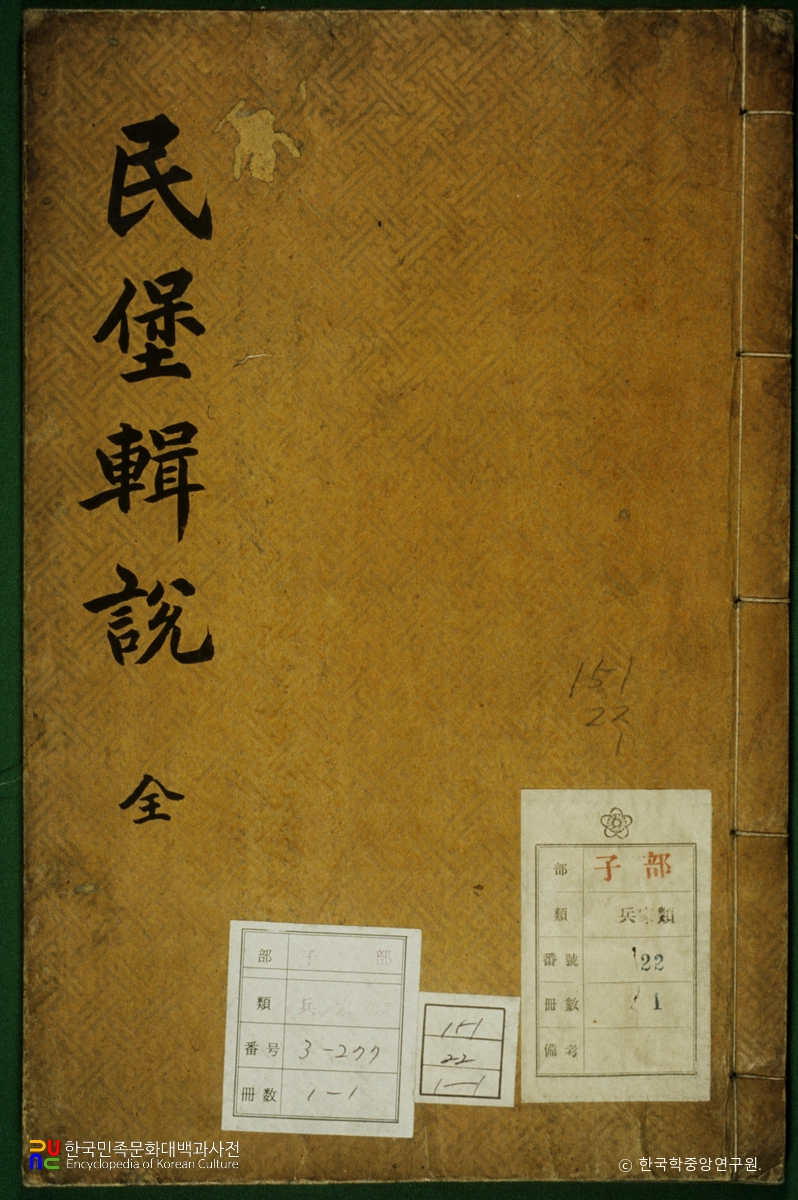 民堡輯說
全
151
22
1
部 子 部
類 兵家類
番號 22
冊數 1
備考
部 子 部
類 兵
番号 3-277
冊数 1-1
151
22
1-1
한국민족문화대백과사전
Encyclopedia of Korean Culture
© 한국학중앙연구원.